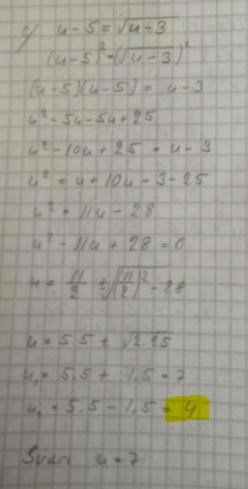 c) u-5 = √u-3
(u-5)² = (√u-3)²
(u-5)(u-5) = u-3
u²-5u-5u+25
u²-10u+25 = u-3
u² = u+10u-3-25
u² = 11u-28
u²-11u+28=0
u = 11/2 ± √(11/2)²-28
u = 5.5 ± √2.25
u₁ = 5.5 + 1.5 = 7
u₂ = 5.5 - 1.5 = 4
Svar: u=7